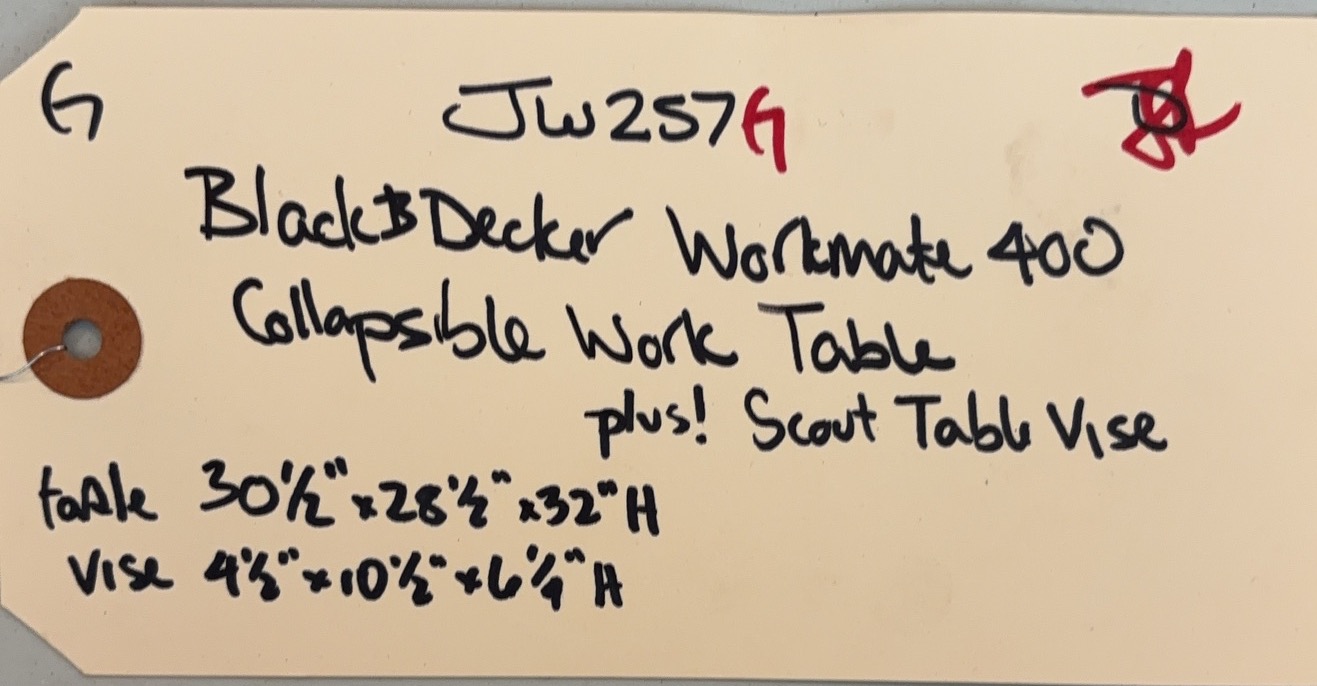 G JW257G
Black & Decker Workmate 400
Collapsible Work Table
plus! Scout Table Vise
table 30½" x 28½" x 32" H
Vise 4½" x 10½" x 6¼" H